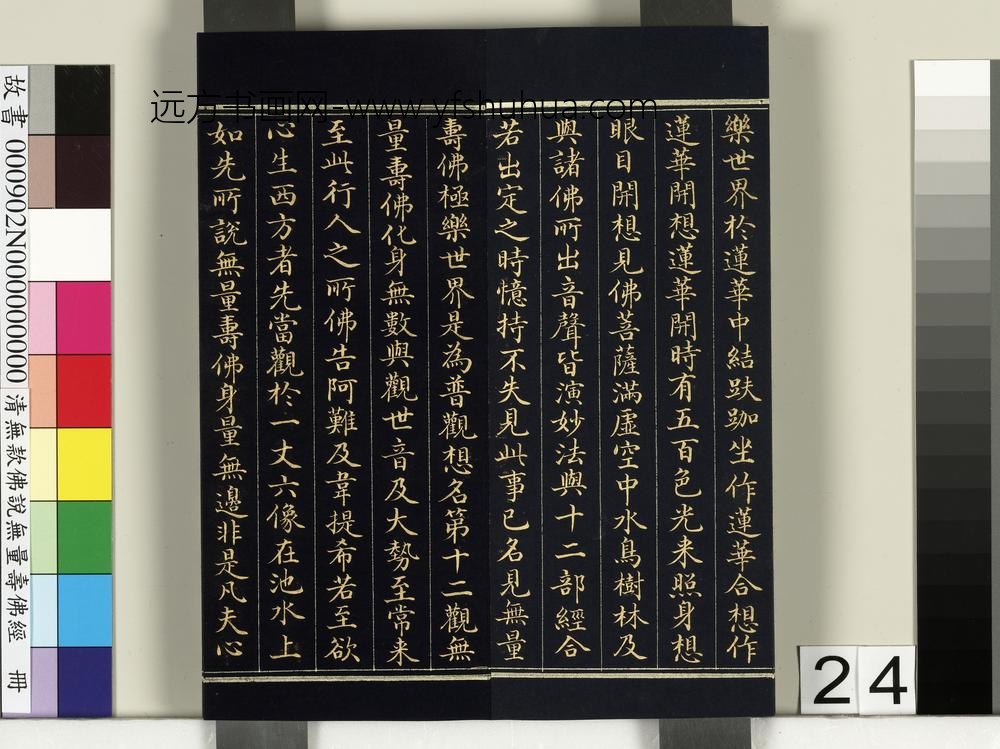 樂世界於蓮華中結趺跏坐作蓮華合想作
蓮華開想蓮華開時有五百色光来照身想
眼目開想見佛菩薩滿虛空中水鳥樹林及
與諸佛所出音聲皆演妙法與十二部經合
若出定之時憶持不失見此事已名見無量
壽佛極樂世界是為普觀想名第十二觀無
量壽佛化身無數與觀世音及大勢至常来
至此行人之所佛告阿難及韋提希若至欲
心生西方者先當觀於一丈六像在池水上
如先所說無量壽佛身量無邊非是凡夫心
远方书画网-www.yfshuhua.com
故書 000902N000000000
清無款佛說無量壽佛經 冊
24